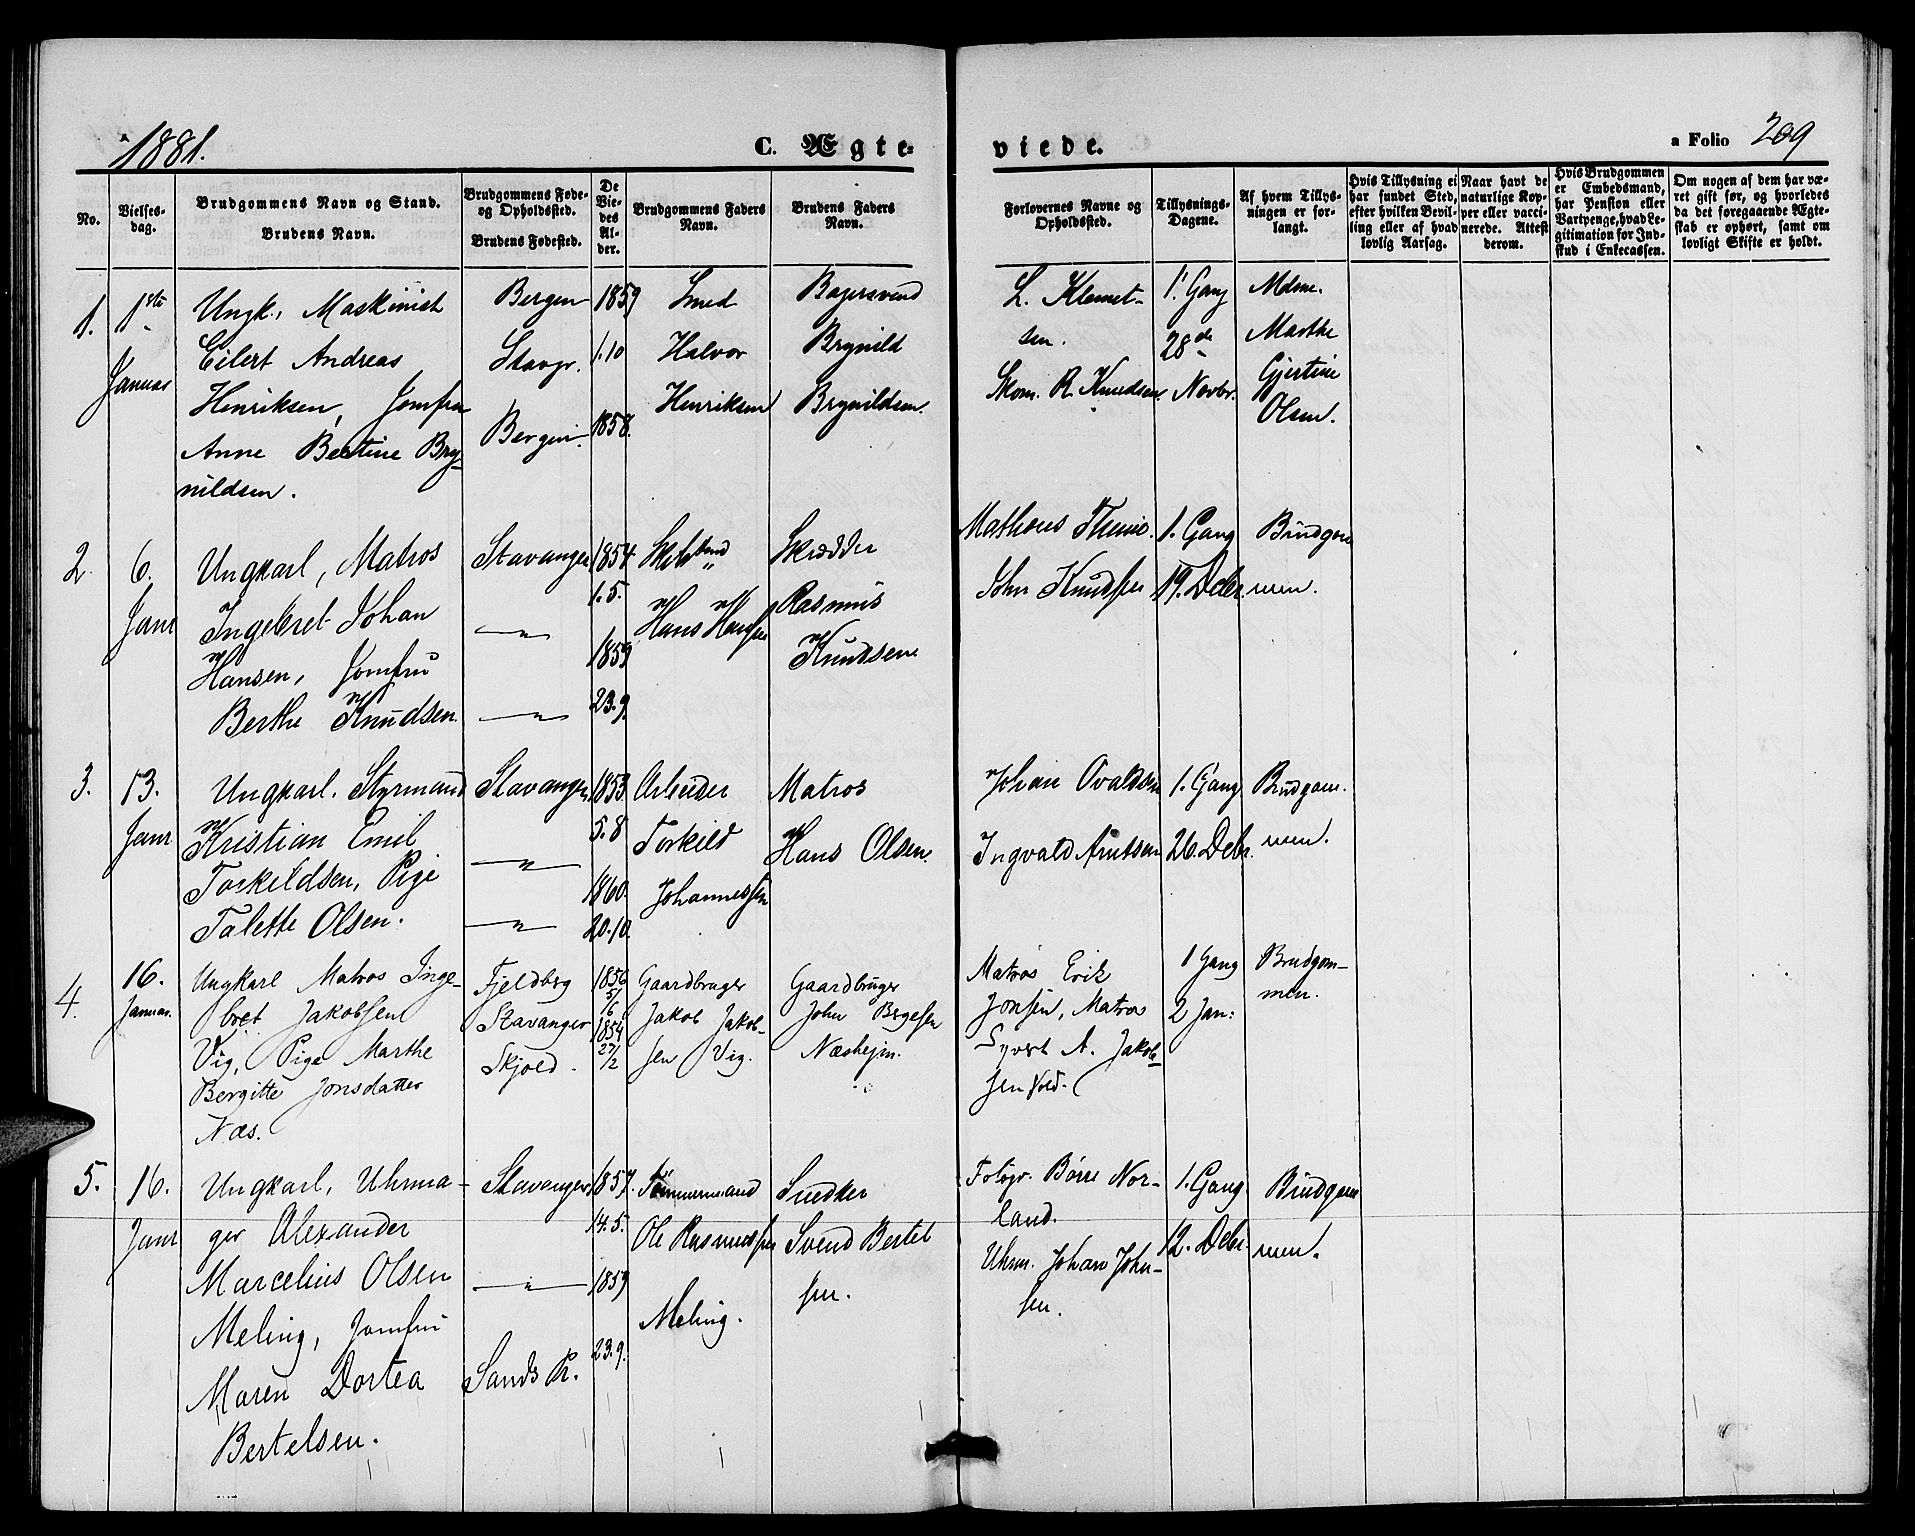 1881.
C. Ægte-
viede.
a Folio 209
No.
Vielses-
dag.
Brudgommens Navn og Stand.
Brudens Navn.
Brudgommens Føde-
og Opholdssted.
Brudens Fødested.
De
Vie-
des
Al-
der.
Brudgommens Faders
Navn.
Brudens Faders
Navn.
Forlovernes Navne og
Opholdssted.
Tillysnings-
Dagene.
Af hvem Tillys-
ningen er for-
langt.
Hvis Tillysning ei
har fundet Sted,
efter hvilken Bevil-
ling eller af hvad
lovlig Aarsag.
Naar havt de
naturlige Kop-
per eller vacci-
nerede. Attest
derom.
Hvis Brudgommen
er Embedsmand,
har Pension eller
Vartpenge, hvad Le-
gitimation for Ind-
skud i Enkecassen.
Om nogen af dem har væ-
ret gift før, og hvorledes
da det foregaaende Ægte-
skab er ophørt, samt om
lovligt Skifte er holdt.
1.
1ste
Januar
Ungk., Maskinist
Eilert Andreas
Henriksen, Jomfru
Anne Bertine Bry-
nildsen.
Bergen
Stavgr.
Bergen.
1859
1.10
1858.
Smed
Halvor
Henriksen
Bagersvend
Brynild
Brynildsen.
L. Klemet-
sen.
Skom. R. Knudsen
1. Gang
28de
Novbr.
Mdme.
Marthe
Gjertine
Olsen.
2.
6.
Janr
Ungkarl, Matros
Ingebret Johan
Hansen, Jomfru
Berthe Knudsen.
Stavanger
—"—
—"—
1854
1.5.
1859
23.9.
Hans Hansen
Skrædder
Rasmus
Knudsen
Mathæus
John Knudsen
1. Gang
19. Debr.
Brudgom
men.
3.
13.
Janr
Ungkarl. Styrmand
Kristian Emil
Torkildsen, Pige
Talette Olsen.
Stavanger
—"—
—"—
1853
5.8
1860.
20.10.
Arbeider
Torkild
Johannessen
Matros
Hans Olsen.
Johan Ovaldsen
Ingvald Arntsen
1. Gang
26. Debr.
Brudgom.
men.
4.
16.
Januar.
Ungkarl Matros Inge-
bret Jakobsen
Vig, Pige Marthe
Bergitte Jonsdatter
Næs.
Fjeldberg
Stavanger
Skjold.
1856
5/6
1854
27/2
Gaardbruger
Jakob Jakob-
sen Vig.
Gaardbruger
John Bergesen
Næshejm.
Matros Erik
Jonsen, Matros
Syvert A. Jakob-
sen Vold.
1 Gang
2 Jan:
Brudgom-
men.
5.
16.
Janr
Ungkarl, Uhrma-
ger Alexander
Marcelius Olsen
Meling, Jomfru
Maren Dortea
Bertelsen.
Stavanger
—"—
Sands Pr.
1857.
14.5.
1859
23.9.
Tømmermand
Ole Rasmussen
Meling.
Snedker
Svend Bertel
sen.
Fotogr. Børre Nor-
land.
Uhrm. Johan John-
sen.
1. Gang
12. Debr.
Brudgom
men.